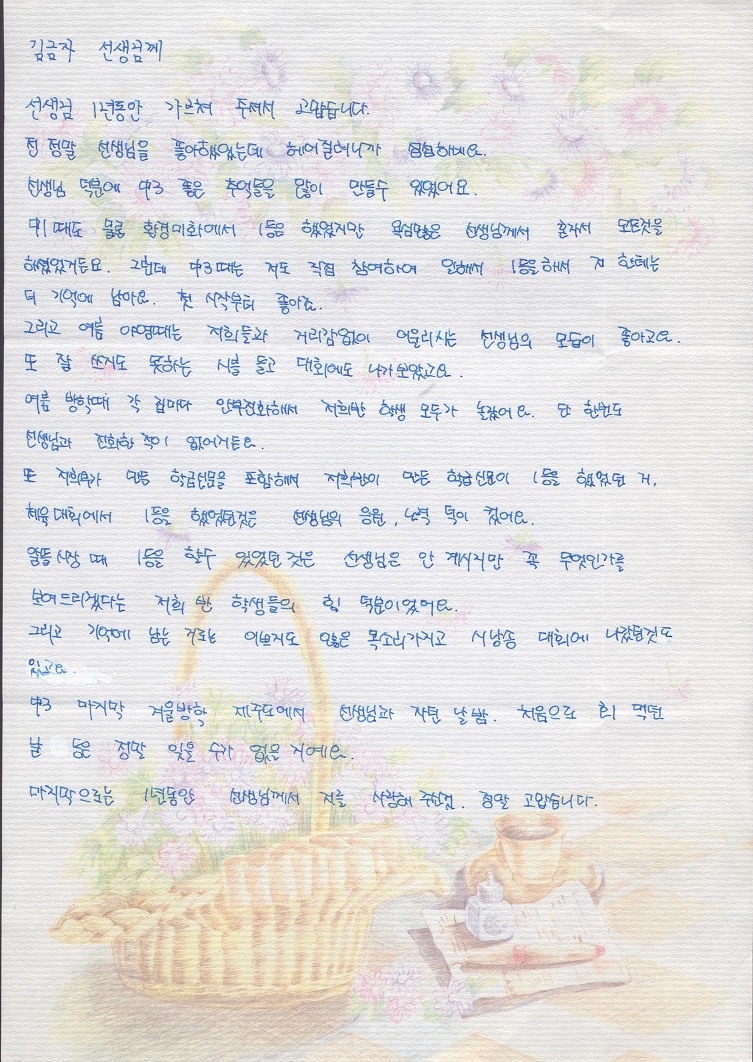 김금자 선생님께
선생님 1년동안 가르쳐 주셔서 고맙습니다.
전 정말 선생님을 좋아했었는데 헤어질려니까 섭섭하네요.
선생님 덕분에 中3 좋은 추억들을 많이 만들수 있었어요.
中1때도 물론 환경미화에서 1등은 했었지만 욕심많은 선생님께서 혼자서 모든것을
하셨었거든요. 그런데 中3때는 저도 직접 참여하여 일해서 1등을해서 저 한테는
더 기억에 남아요. 첫 시작부터 좋아죠.
그리고 여름 야영때는 저희들과 거리감없이 어울리시는 선생님의 모습이 좋아고요.
또 잘 쓰지도 못하는 시를 들고 대회에도 나가보았고요.
여름 방학때 각 집마다 안부전화해서 저희반 학생 모두가 놀랐어요. 단 한번도
선생님과 전화한 적이 없어거든요.
또 저희부가 만든 학급신문을 포함해서 저희반이 만든 학급신문이 1등을 했었던 거,
체육대회에서 1등을 했었던것은 선생님의 응원, 노력 덕이 컸어요.
알뜰시장 때 1등을 할수 있었던 것은 선생님은 안 계시지만 꼭 무엇인가를
보여드리겠다는 저희 반 학생들의 힘 덕분이었어요.
그리고 기억에 남는 거로는 이쁘지도 않은 목소리가지고 시낭송 대회에 나갔던것도
있고요.
中3 마지막 겨울방학 제주도에서 선생님과 자던 날 밤. 처음으로 회 먹던
날 등은 정말 잊을 수가 없을 거예요.
마지막으로는 1년동안 선생님께서 저를 사랑해 주신점. 정말 고맙습니다.